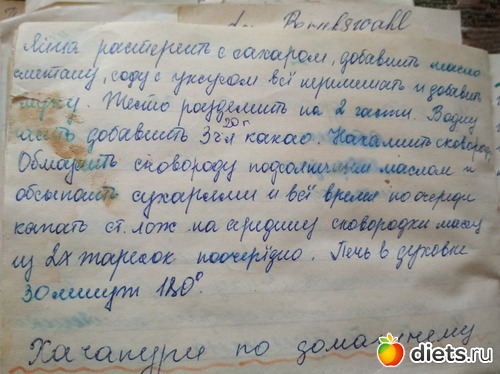 Bornkswahl
Яйца растереть с сахаром, добавить масло
сметану, соду с уксусом всё перемешать и добавить
муку. Тесто разделить на 2 части. В одну
часть добавить 3 ч л какао. Накалить сковороду
20г
Обмазать сковороду подсолнечным маслом и
обсыпать сухарями и всё время по очереди
капать ст. лож на середину сковородки массу
из 2х тарелок поочерёдно. Печь в духовке
30 минут 180°.
Хачапури по домашнему
diets.ru